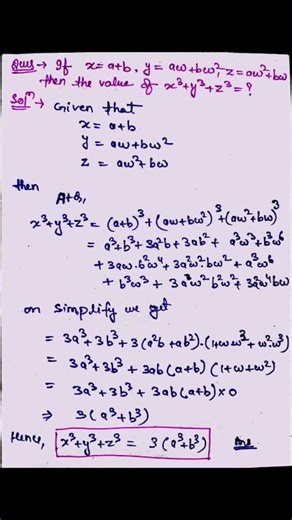 Ques → If x = a+b, y = aω+bω², z = aω²+bω
then the value of x³+y³+z³ = ?
Solⁿ → Given that
x = a+b
y = aω+bω²
z = aω²+bω
then
x³+y³+z³ = (a+b)³ + (aω+bω²)³ + (aω²+bω)³
= a³+b³+3a²b+3ab² + a³ω³+b³ω⁶
+ 3aω.b²ω⁴ + 3a²ω².bω² + a³ω⁶
+ b³ω³ + 3a²ω²b²ω² + 3a²ω⁴bω
on simplify we get
= 3a³+3b³+3(a²b+ab²).(1+ω.ω³+ω².ω³)
= 3a³+3b³+3ab(a+b)(1+ω+ω²)
= 3a³+3b³+3ab(a+b)×0
⇒ 3(a³+b³)
Hence, x³+y³+z³ = 3(a³+b³) Ans